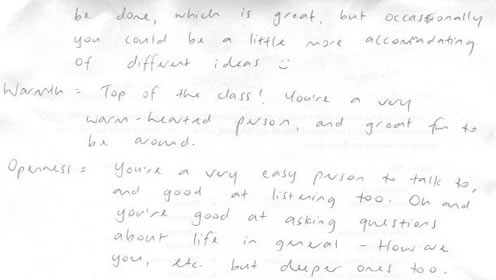 be done, which is great, but occassionally
you could be a little more accomadating
of different ideas :)
Warmth = Top of the class! You're a very
warm-hearted person, and great fun to
be around.
Openness = You're a very easy person to talk to,
and good at listering too. Oh and
you're good at asking questions
about life in general - How are
you, etc. but deeper ones too.